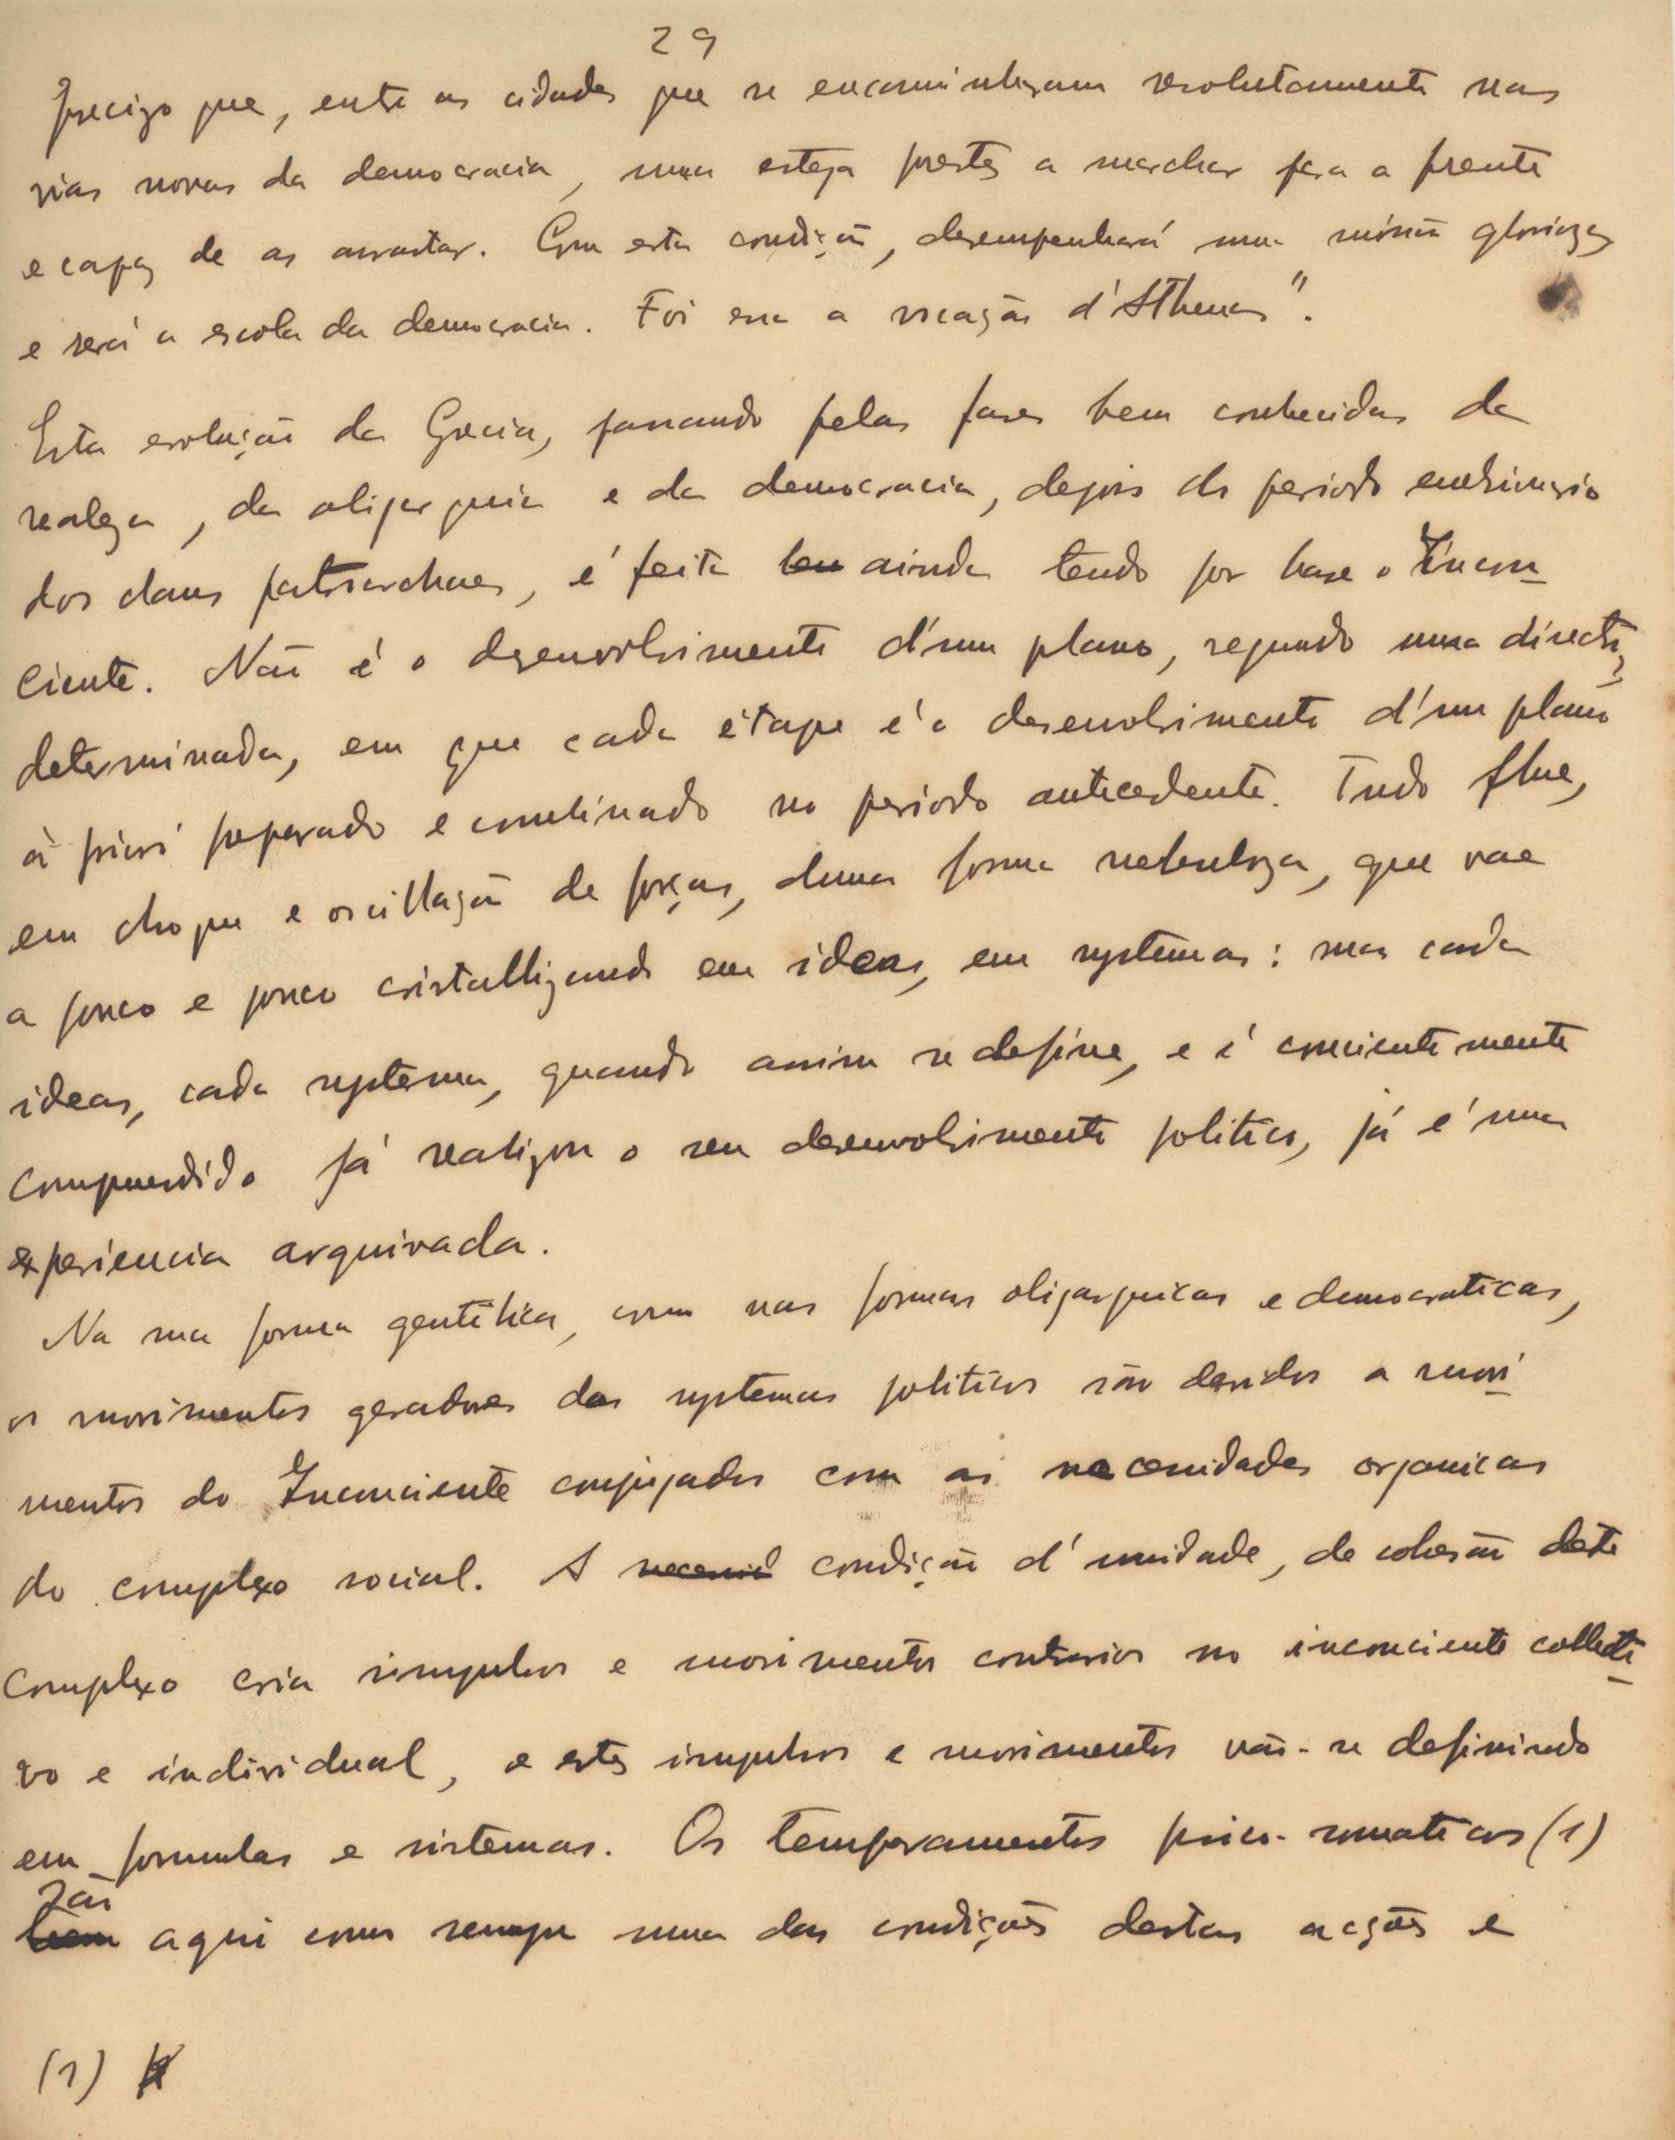 29
precizo que, entre as cidades que se encaminhavam resolutamente nas
vias novas da democracia, uma esteja prestes a marchar para a frente
e capaz de as arrastar. Com esta condição, desempenhará uma missão glorioza,
e será a escola da democracia. Foi essa a vocação d'Athenas".
Esta evolução da Grecia, passando pelas fases bem conhecidas da
realeza, da oligarquia e da democracia, depois do periodo embrionario
dos clans patriarchaes, é feita ben ainda tendo por base o Incon-
ciente. Não é o dezenvolvimento d'um plano, segundo uma directriz
determinada, em que cada étape é o desenvolvimento d'um plano
à priori preparado e combinado no periodo antecedente. Tudo flue,
em choque e oscillação de forças, duma forma nebuloza, que vae
a pouco e pouco cristallizando em ideas, em systemas: mas cada
ideas, cada systema, quando assim se define, e é concientemente
comprendido já realizou o seu desenvolvimento politico, já é uma
experiencia arquivada.
Na sua forma gentilica, como nas formas oligarquicas e democraticas,
os movimentos geradores dos systemas politicos são devidos a movi-
mentos do Inconciente conjugados com as necessidades organicas
do complexo social. A necessid condição d'unidade, de cohesão deste
complexo cria impulsos e movimentos contrarios no inconciente collecti-
vo e individual, e estes impulsos e movimentos vão-se definindo
em formulas e sistemas. Os temperamentos psico-somaticos (1)
são
bem aqui como sempre uma das condições destas acções e
(1)